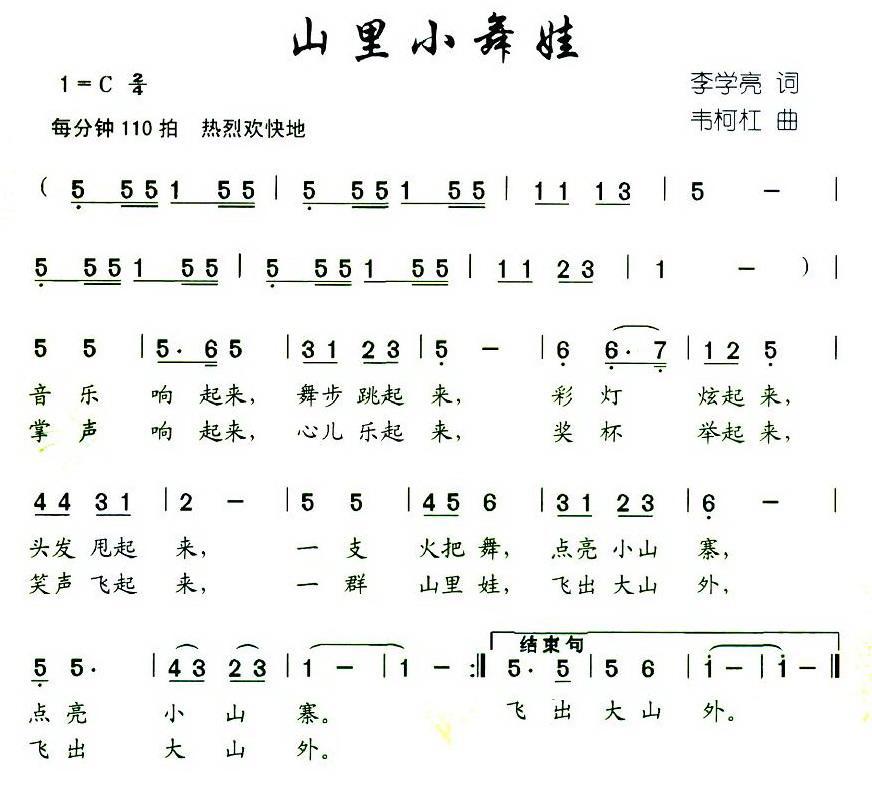 山里小舞娃
1=C 2/4
李学亮 词
每分钟110拍 热烈欢快地
韦柯杠 曲
( 5 55 1 55 | 5 55 1 55 | 11 13 | 5 - |
5 55 1 55 | 5 55 1 55 | 11 23 | 1 - ) |
5 5 | 5· 6 5 | 31 23 | 5 - | 6 6· 7 | 12 5 |
音 乐 响 起来, 舞步 跳起 来, 彩 灯 炫起 来,
掌 声 响 起来, 心儿 乐起 来, 奖 杯 举起 来,
44 31 | 2 - | 5 5 | 45 6 | 31 23 | 6 - |
头发 甩起 来, 一 支 火把 舞, 点亮 小山 寨,
笑声 飞起 来, 一 群 山里 娃, 飞出 大山 外,
结束句
5 5· | 43 23 | 1 - | 1 - :‖ 5· 5 | 5 6 | i - | i - ‖
点 亮 小 山 寨。 飞 出 大 山 外。
飞 出 大 山 外。